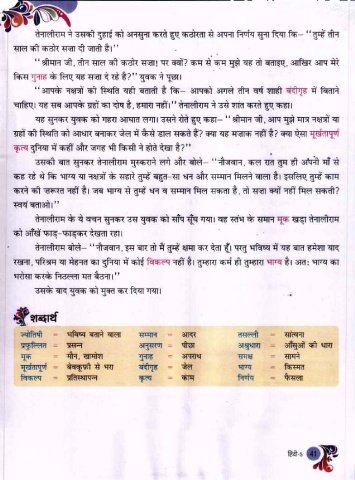 तेनालीराम ने उसकी दुहाई को अनसुना करते हुए कठोरता से अपना निर्णय सुना दिया कि– ‘‘तुम्हें तीन
साल की कठोर सजा दी जाती है।’’
‘‘श्रीमान जी, तीन साल की कठोर सजा! पर क्यों? कम से कम मुझे यह तो बताइए, आखिर आप मेरे
किस गुनाह के लिए यह सजा दे रहे है?’’ युवक ने पूछा।
‘‘आपके नक्षत्रों की स्थिति यही बताती है कि– आपको अगले तीन वर्ष शाही बंदीगृह में बिताने
चाहिए। यह सब आपके ग्रहों का दोष है, हमारा नहीं।’’ तेनालीराम ने उसे शांत करते हुए कहा।
यह सुनकर युवक को गहरा आघात लगा। उसने रोते हुए कहा– ‘‘श्रीमान जी, आप मुझे मात्र नक्षत्रों या
ग्रहों की स्थिति को आधार बनाकर जेल में कैसे डाल सकते हैं? क्या यह मजाक नहीं है? क्या ऐसा मूर्खतापूर्ण
कृत्य दुनिया में कहीं और जगह भी किसी ने होते देखा है?’’
उसकी बात सुनकर तेनालीराम मुस्कराने लगे और बोले– ‘‘नौजवान, कल रात तुम ही अपनी माँ से
कह रहे थे कि भाग्य या नक्षत्रों के सहारे तुम्हें बहुत-सा धन और सम्मान मिलने वाला है। इसलिए तुम्हें काम
करने की जरूरत नहीं है। जब भाग्य से तुम्हें धन व सम्मान मिल सकता है, तो सजा क्यों नहीं मिल सकती?
स्वयं बताओ।’’
तेनालीराम के ये वचन सुनकर उस युवक को साँप सूँघ गया। वह स्तंभ के समान मूक खड़ा तेनालीराम
को आँखें फाड़-फाड़कर देखता रहा।
तेनालीराम बोले– ‘‘नौजवान, इस बार तो मैं तुम्हें क्षमा कर देता हूँ। परंतु भविष्य में यह बात हमेशा याद
रखना, परिश्रम या मेहनत का दुनिया में कोई विकल्प नहीं है। तुम्हारा कर्म ही तुम्हारा भाग्य है। अतः भाग्य का
भरोसा करके निठल्ला मत बैठना।’’
उसके बाद युवक को मुक्त कर दिया गया।
शब्दार्थ
ज्योतिषी = भविष्य बताने वाला सम्मान = आदर तसल्ली = सांत्वना
प्रफुल्लित = प्रसन्न अनुसरण = पीछा अश्रुधारा = आँसुओं की धारा
मूक = मौन, खामोश गुनाह = अपराध समक्ष = सामने
मूर्खतापूर्ण = बेवकूफी से भरा बंदीगृह = जेल भाग्य = किस्मत
विकल्प = प्रतिस्थापन्न कृत्य = काम निर्णय = फैसला
हिंदी-5 41